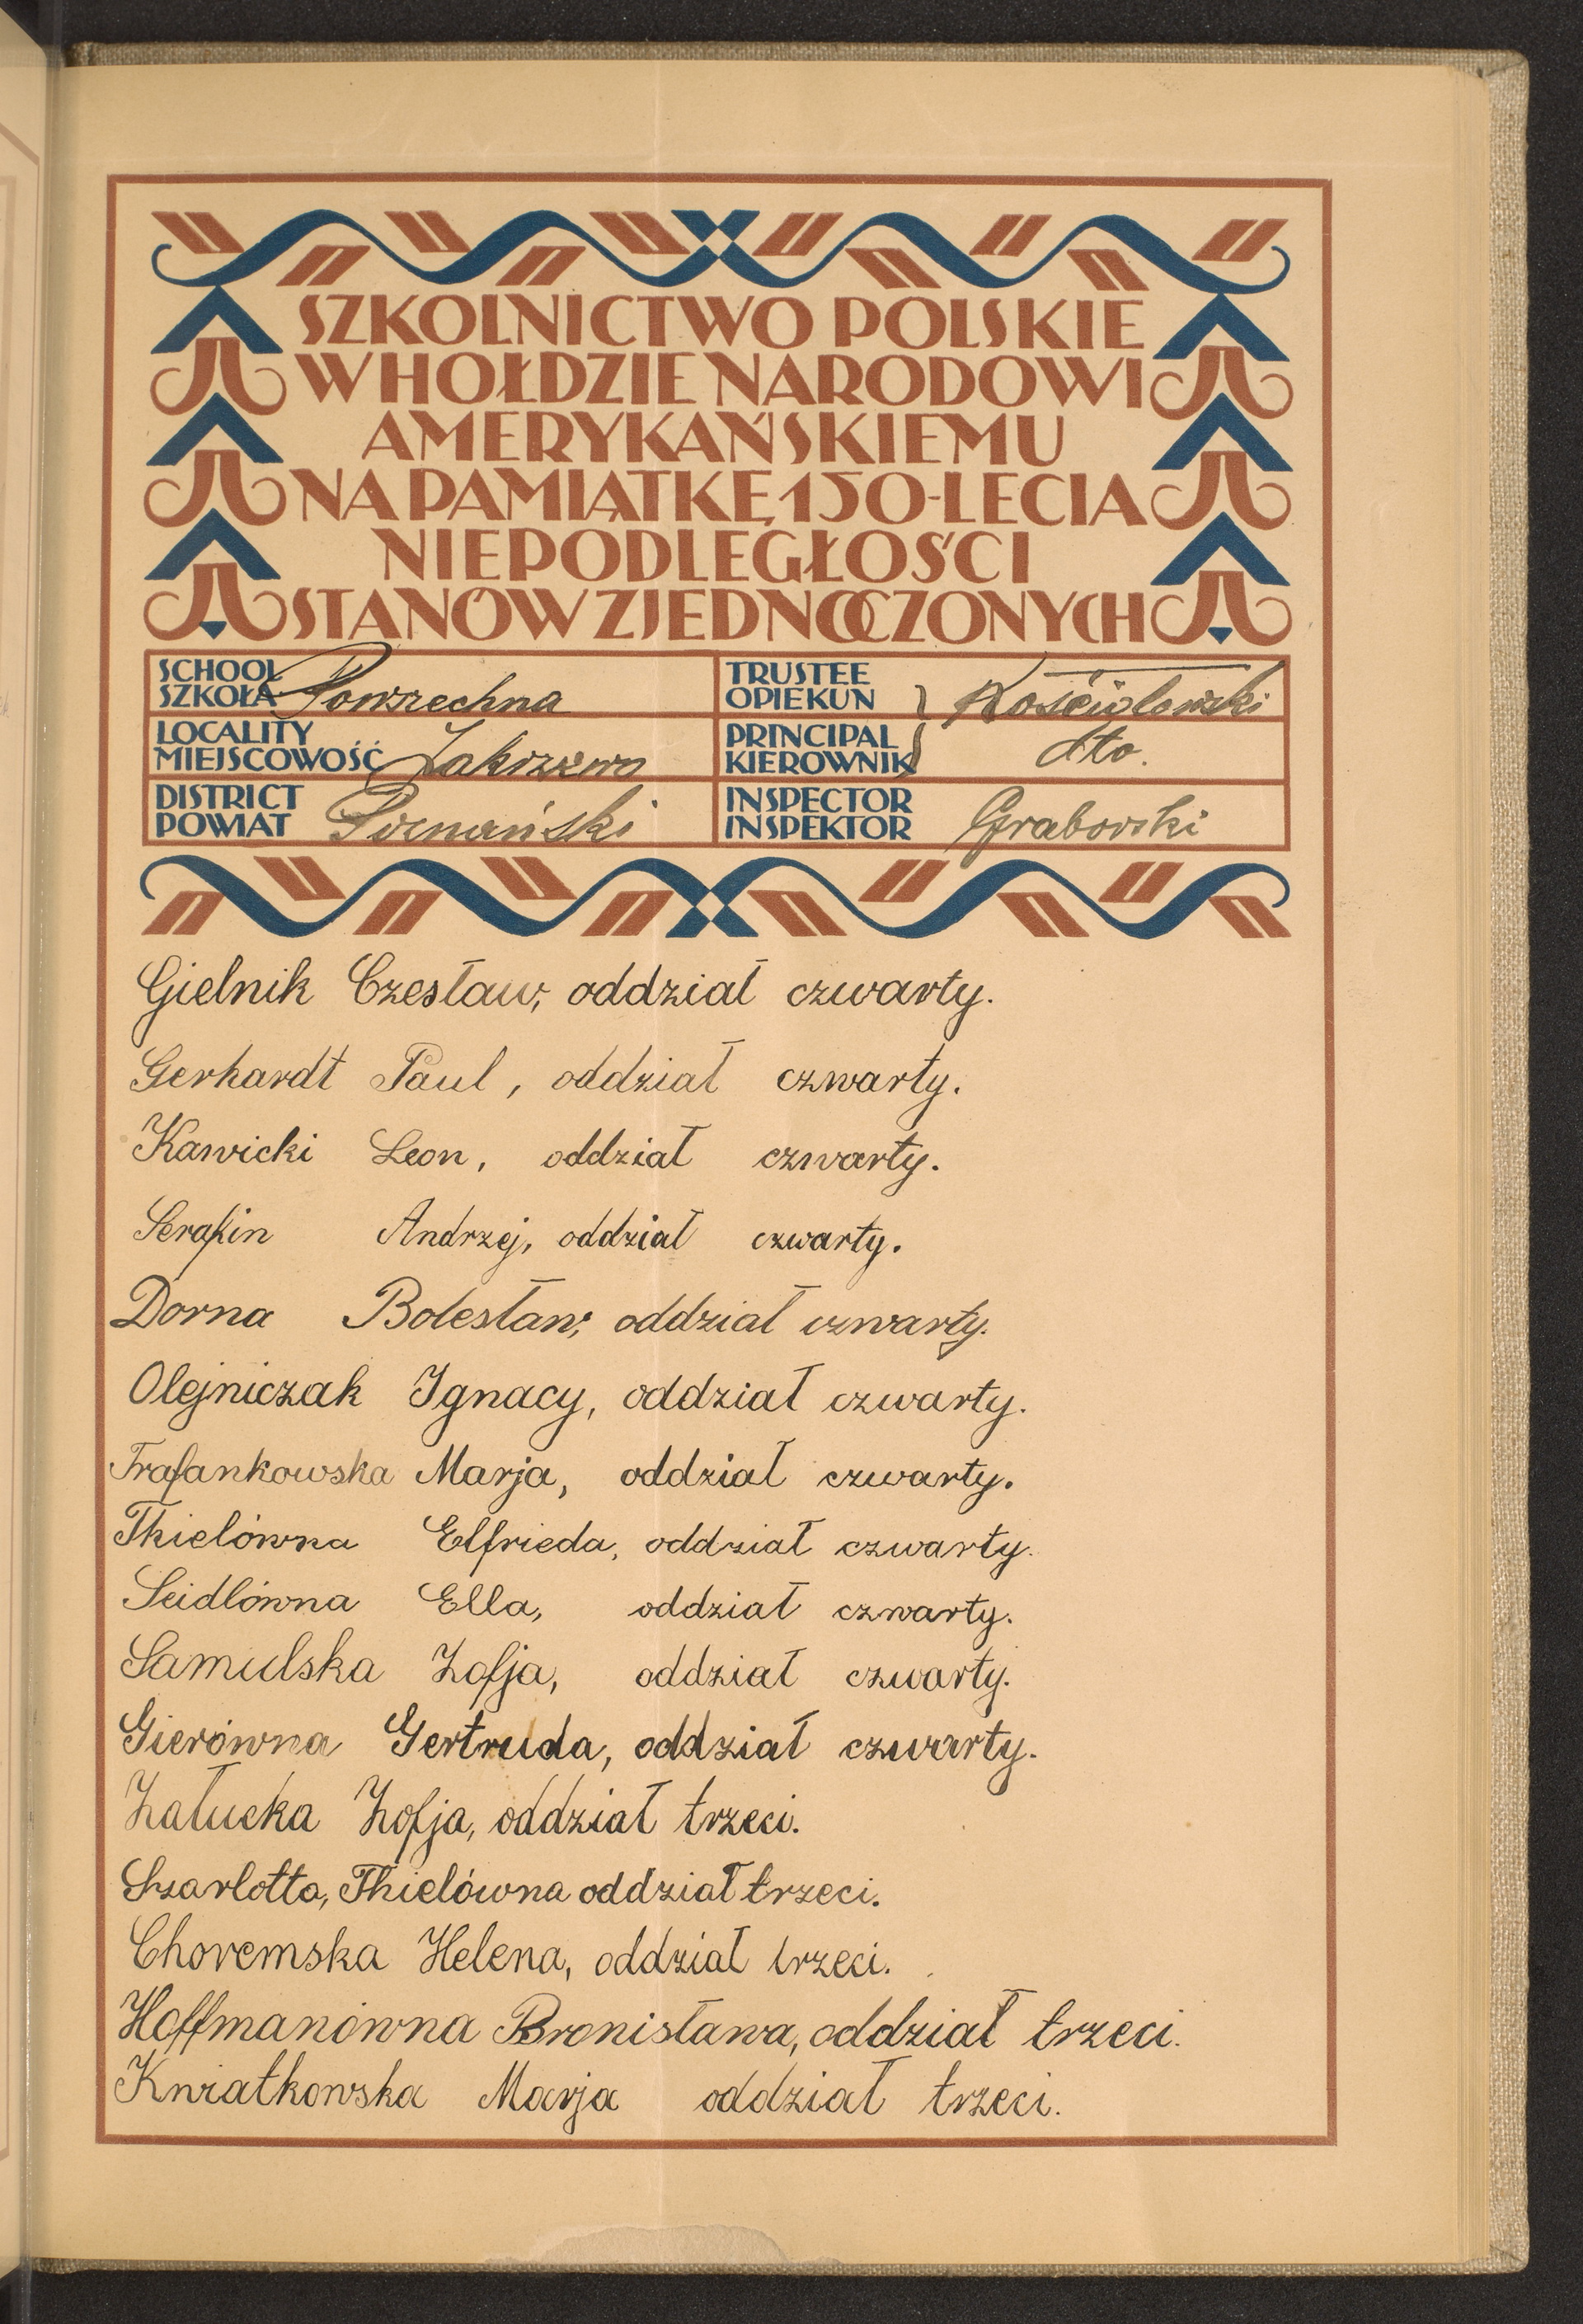 SZKOLNICTWO POLSKIE
W HOŁDZIE NARODOWI
AMERYKAŃSKIEMU
NA PAMIĄTKĘ 150-LECIA
NIEPODLEGŁOŚCI
STANÓW ZJEDNOCZONYCH
SCHOOL
SZKOŁA Powszechna
TRUSTEE
OPIEKUN Kościołowski
LOCALITY
MIEJSCOWOŚĆ Zakrzewo
PRINCIPAL
KIEROWNIK dto.
DISTRICT
POWIAT Poznański
INSPECTOR
INSPEKTOR Grabowski
Gielnik Czesław, oddział czwarty.
Gerhardt Paul, oddział czwarty.
Kawicki Leon, oddział czwarty.
Serafin Andrzej, oddział czwarty.
Dorna Bolesław, oddział czwarty.
Olejniczak Ignacy, oddział czwarty.
Trafankowska Marja, oddział czwarty.
Thielówna Elfrieda, oddział czwarty.
Seidlówna Ella, oddział czwarty.
Samulska Zofja, oddział czwarty.
Gierówna Gertruda, oddział czwarty.
Załucka Zofja, oddział trzeci.
Szarlotta, Thielówna oddział trzeci.
Choremska Helena, oddział trzeci.
Hoffmanówna Bronisława, oddział trzeci.
Kwiatkowska Marja oddział trzeci.